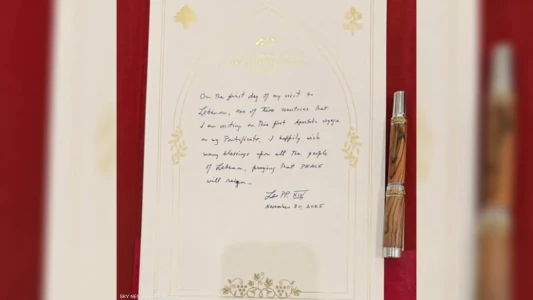 On the first day of my visit to
Lebanon, one of two countries that
I am visiting on this first Apostolic voyage
in my Pontificate, I happily wish
many blessings upon all the people
of Lebanon, praying that PEACE
will reign.
Leo PP. XIV
November 30, 2025
SKY NE